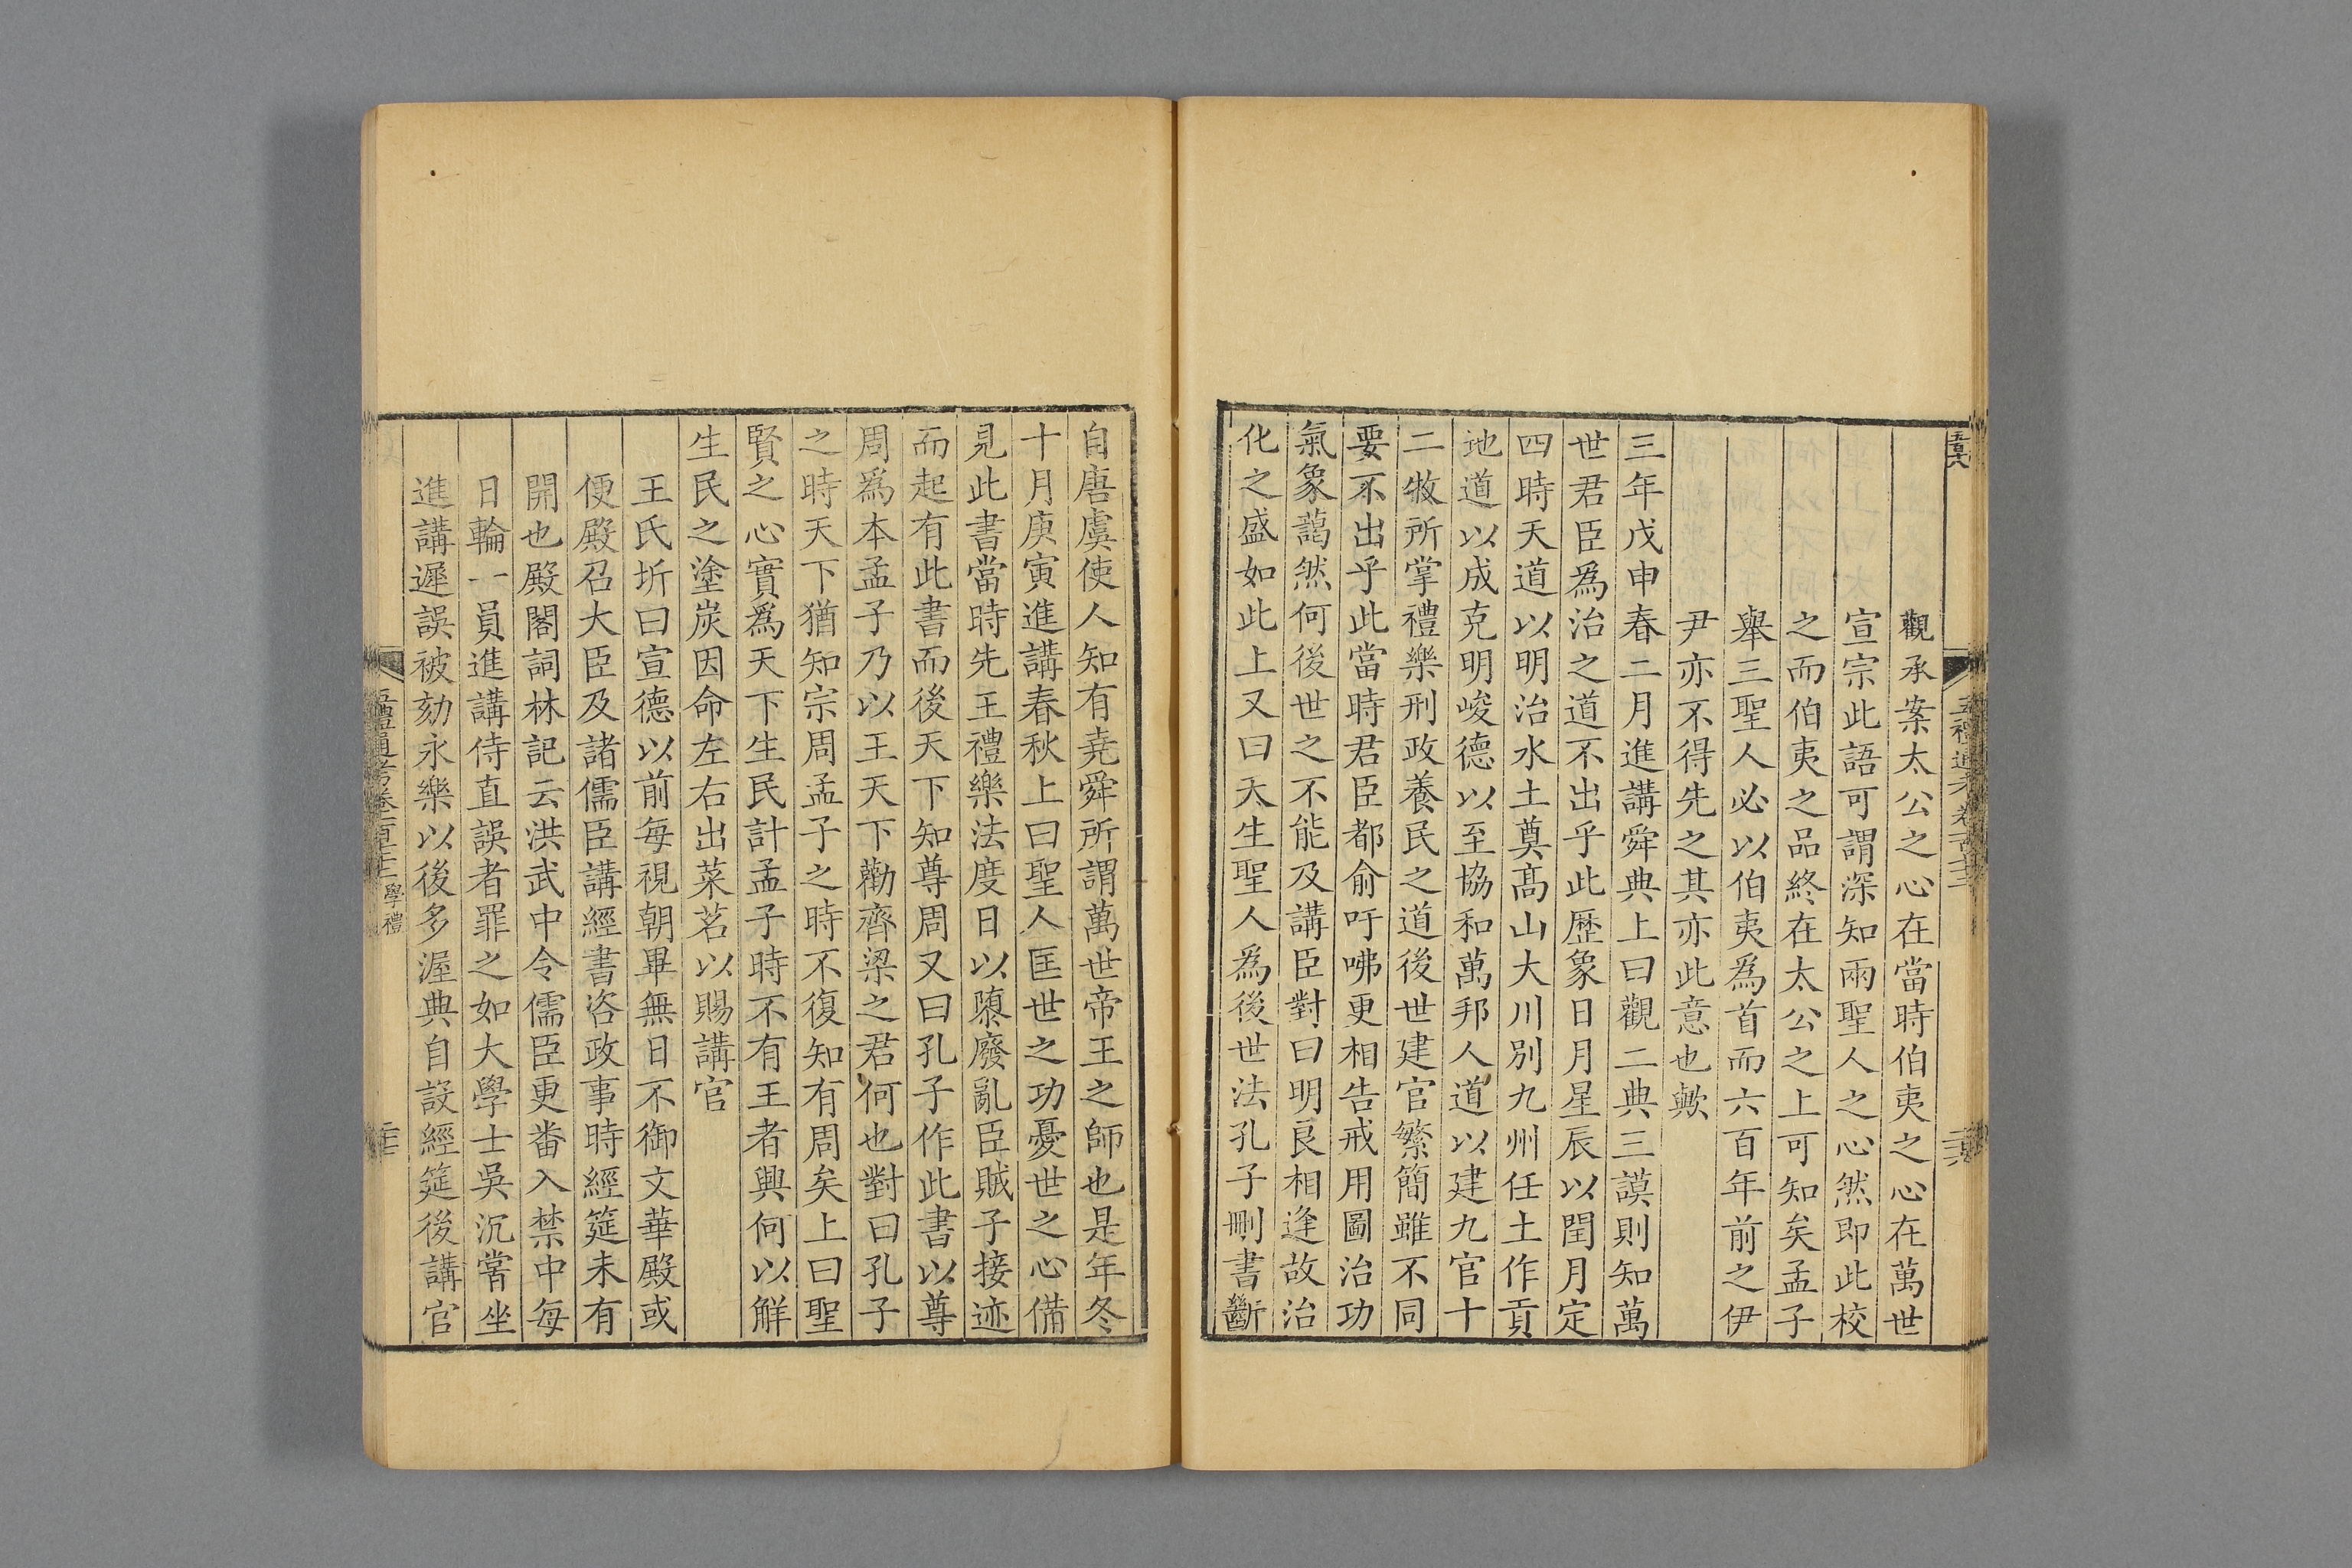 觀承案太公之心在當時伯夷之心在萬世
宣宗此語可謂深知兩聖人之心然即此校
之而伯夷之品終在太公之上可知矣孟子
舉三聖人必以伯夷爲首而六百年前之伊
尹亦不得先之其亦此意也歟
三年戊申春二月進講舜典上曰觀二典三謨則知萬
世君臣爲治之道不出乎此歷象日月星辰以閏月定
四時天道以明治水土奠高山大川別九州任土作貢
地道以成克明峻德以至協和萬邦人道以建九官十
二牧所掌禮樂刑政養民之道後世建官繁簡雖不同
要不出乎此當時君臣都俞吁咈更相告戒用圖治功
氣象藹然何後世之不能及講臣對曰明良相逢故治
化之盛如此上又曰天生聖人爲後世法孔子刪書斷
自唐虞使人知有堯舜所謂萬世帝王之師也是年冬
十月庚寅進講春秋上曰聖人匡世之功憂世之心備
見此書當時先王禮樂法度日以隳廢亂臣賊子接迹
而起有此書而後天下知尊周又曰孔子作此書以尊
周爲本孟子乃以王天下勸齊梁之君何也對曰孔子
之時天下猶知宗周孟子之時不復知有周矣上曰聖
賢之心實爲天下生民計孟子時不有王者興何以解
生民之塗炭因命左右出菜茗以賜講官
王氏圻曰宣德以前每視朝畢無日不御文華殿或
便殿召大臣及諸儒臣講經書咨政事時經筵未有
開也殿閣詞林記云洪武中令儒臣更畨入禁中每
日輪一員進講侍直誤者罪之如大學士吳沉嘗坐
進講遲誤被劾永樂以後多渥典自設經筵後講官
五禮通考卷一百七十二 學禮